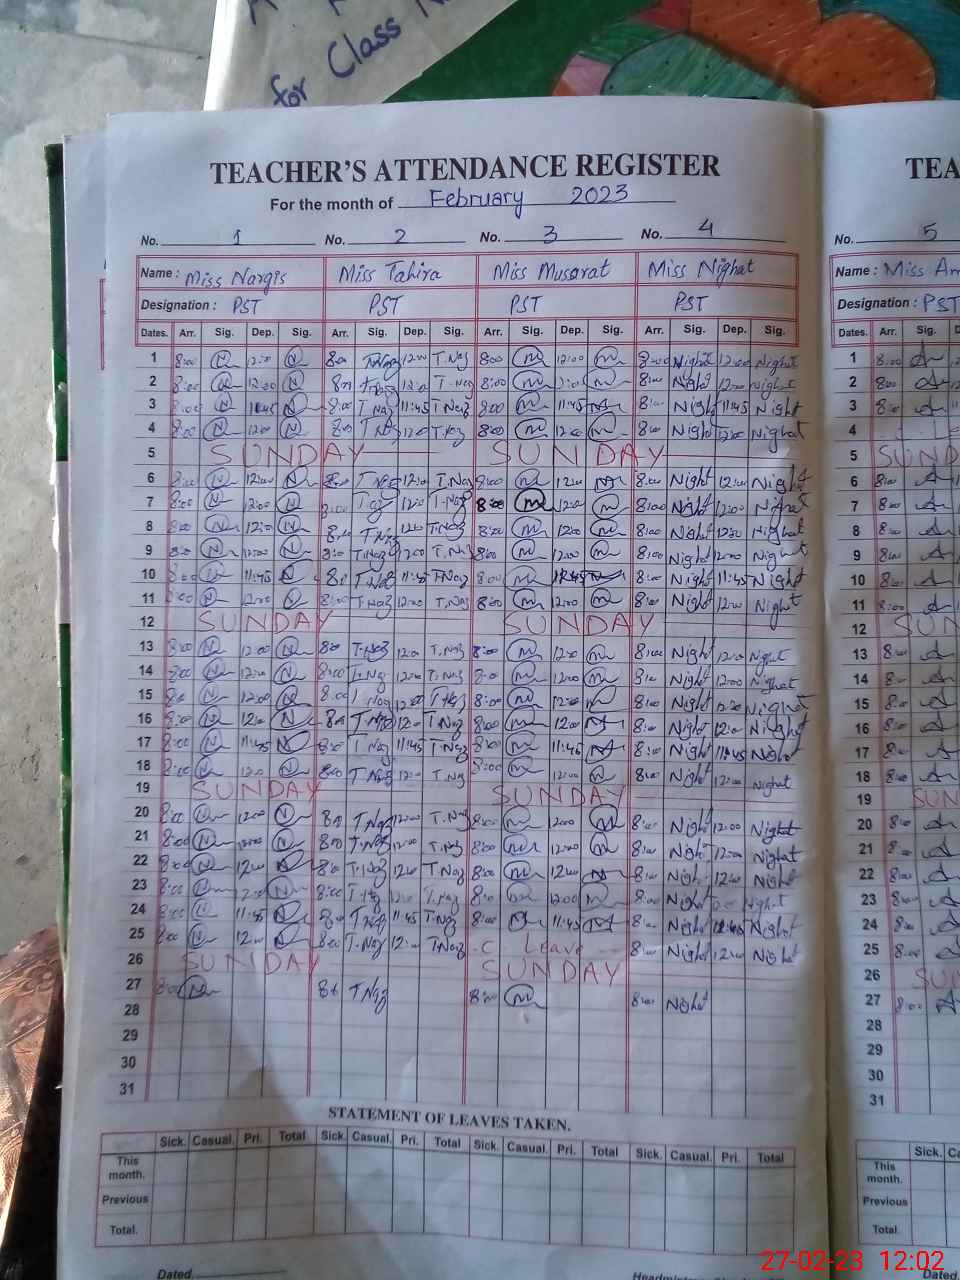 for Class
TEACHER'S ATTENDANCE REGISTER
TEA
For the month of February 2023
No. 1 No. 2 No. 3 No. 4 No. 5
Name : Miss Nargis Miss Tahira Miss Musarat Miss Nighat Name : Miss Am
Designation : PST PST PST PST Designation : PST
Dates. Arr. Sig. Dep. Sig. Arr. Sig. Dep. Sig. Arr. Sig. Dep. Sig. Arr. Sig. Dep. Sig. Dates. Arr. Sig.
1 8:00 N 12:00 N 8:00 T.Naz 12:00 T.Naz 8:00 m 12:00 m 8:00 Night 12:00 Nighat 1 8:00
2 8:00 N 12:00 N 8:00 T.Naz 12:00 T.Naz 8:00 m 12:00 m 8:00 Night 12:00 Nighat 2 8:00
3 8:00 N 11:45 N 8:00 T.Naz 11:45 T.Naz 8:00 m 11:45 m 8:00 Night 11:45 Night 3 8:00
4 8:00 N 12:00 N 8:00 T.Naz 12:00 T.Naz 8:00 m 12:00 m 8:00 Night 12:00 Nighat 4
5 SUNDAY SUNDAY 5 SUND
6 8:00 N 12:00 N 8:00 T.Naz 12:00 T.Naz 8:00 m 12:00 m 8:00 Night 12:00 Night 6 8:00
7 8:00 N 12:00 N 8:00 T.Naz 12:00 T.Naz 8:00 m 12:00 m 8:00 Night 12:00 Nighat 7 8:00
8 8:00 N 12:00 N 8:00 T.Naz 12:00 T.Naz 8:00 m 12:00 m 8:00 Night 12:00 Nighat 8 8:00
9 8:00 N 12:00 N 8:00 T.Naz 12:00 T.Naz 8:00 m 12:00 m 8:00 Night 12:00 Night 9 8:00
10 8:00 N 11:45 N 8:00 T.Naz 11:45 T.Naz 8:00 m 11:45 m 8:00 Night 11:45 Night 10 8:00
11 8:00 N 12:00 N 8:00 T.Naz 12:00 T.Naz 8:00 m 12:00 m 8:00 Night 12:00 Night 11 8:00
12 SUNDAY SUNDAY 12 SUN
13 8:00 N 12:00 N 8:00 T.Naz 12:00 T.Naz 8:00 m 12:00 m 8:00 Night 12:00 Night 13 8:00
14 8:00 N 12:00 N 8:00 T.Naz 12:00 T.Naz 8:00 m 12:00 m 8:00 Night 12:00 Nighat 14 8:00
15 8:00 N 12:00 N 8:00 T.Naz 12:00 T.Naz 8:00 m 12:00 m 8:00 Night 12:00 Nighat 15 8:00
16 8:00 N 12:00 N 8:00 T.Naz 12:00 T.Naz 8:00 m 12:00 m 8:00 Night 12:00 Nighat 16 8:00
17 8:00 N 11:45 N 8:00 T.Naz 11:45 T.Naz 8:00 m 11:45 m 8:00 Night 11:45 Night 17 8:00
18 8:00 N 12:00 N 8:00 T.Naz 12:00 T.Naz 8:00 m 12:00 m 8:00 Night 12:00 Night 18 8:00
19 SUNDAY SUNDAY 19 SUN
20 8:00 N 12:00 N 8:00 T.Naz 12:00 T.Naz 8:00 m 12:00 m 8:00 Night 12:00 Nighat 20 8:00
21 8:00 N 12:00 N 8:00 T.Naz 12:00 T.Naz 8:00 m 12:00 m 8:00 Night 12:00 Nighat 21 8:00
22 8:00 N 12:00 N 8:00 T.Naz 12:00 T.Naz 8:00 m 12:00 m 8:00 Night 12:00 Night 22 8:00
23 8:00 N 12:00 N 8:00 T.Naz 12:00 T.Naz 8:00 m 12:00 m 8:00 Night Night 23 8:00
24 8:00 N 11:45 N 8:00 T.Naz 11:45 T.Naz 8:00 m 11:45 m 8:00 Night 11:45 Night 24 8:00
25 8:00 N 12:00 N 8:00 T.Naz 12:00 T.Naz C. Leave 8:00 Night 12:00 Night 25 8:00
26 SUNDAY SUNDAY 26 SUN
27 8:00 N 8:00 T.Naz 8:00 m 8:00 Night 27 8:00
28 28
29 29
30 30
31 31
STATEMENT OF LEAVES TAKEN.
Sick. Casual. Pri. Total Sick. Casual. Pri. Total Sick. Casual. Pri. Total Sick. Casual. Pri. Total Sick.
This month. This month.
Previous Previous
Total. Total.
Dated. Dated
27-02-23 12:02